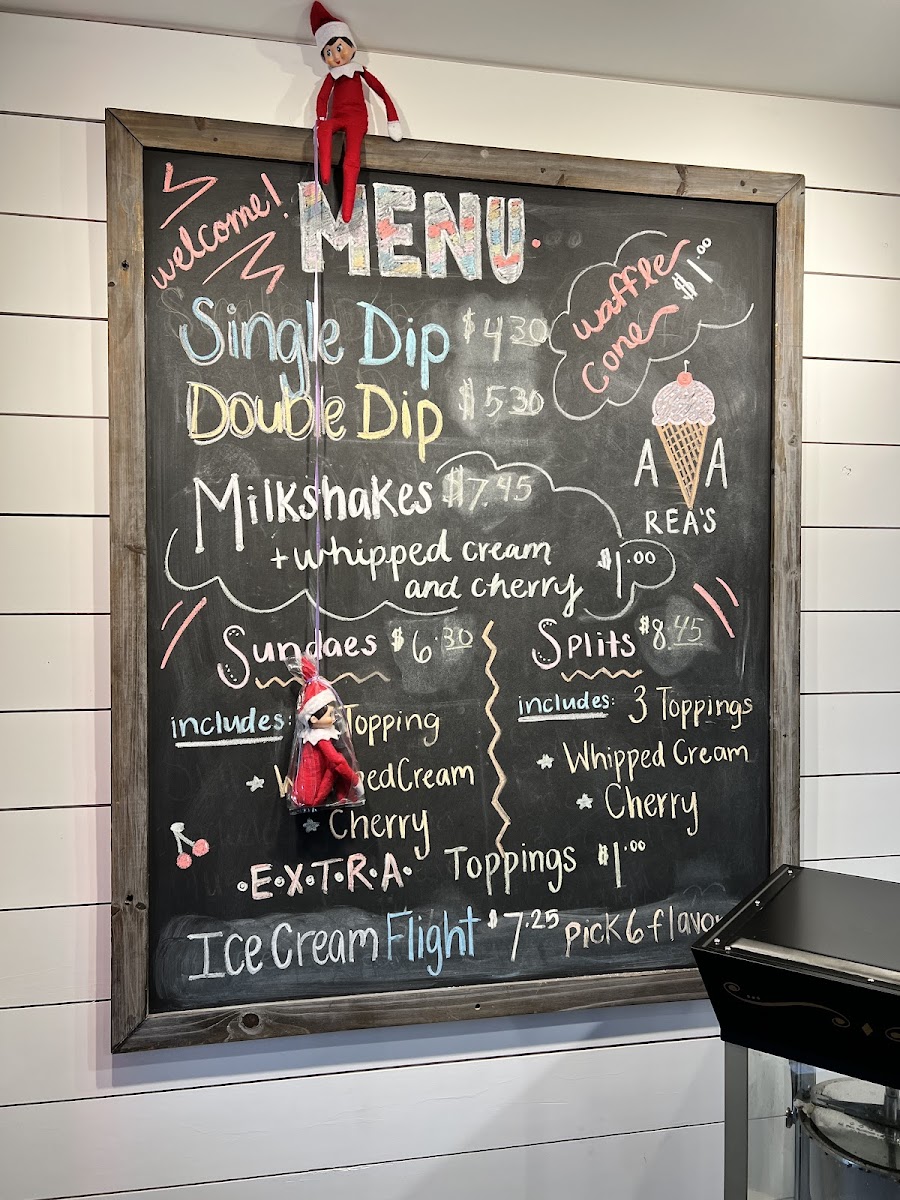 welcome!
MENU
waffle
cone
$1.00
Single Dip $4.30
Double Dip $5.30
A A
REA'S
Milkshakes $7.45
+whipped cream
and cherry $1.00
Sundaes $6.30
includes: Topping
Cream
Cherry
Splits $8.45
includes: 3 Toppings
Whipped Cream
Cherry
E.X.T.R.A. Toppings $1.00
Ice Cream Flight $7.25 pick 6